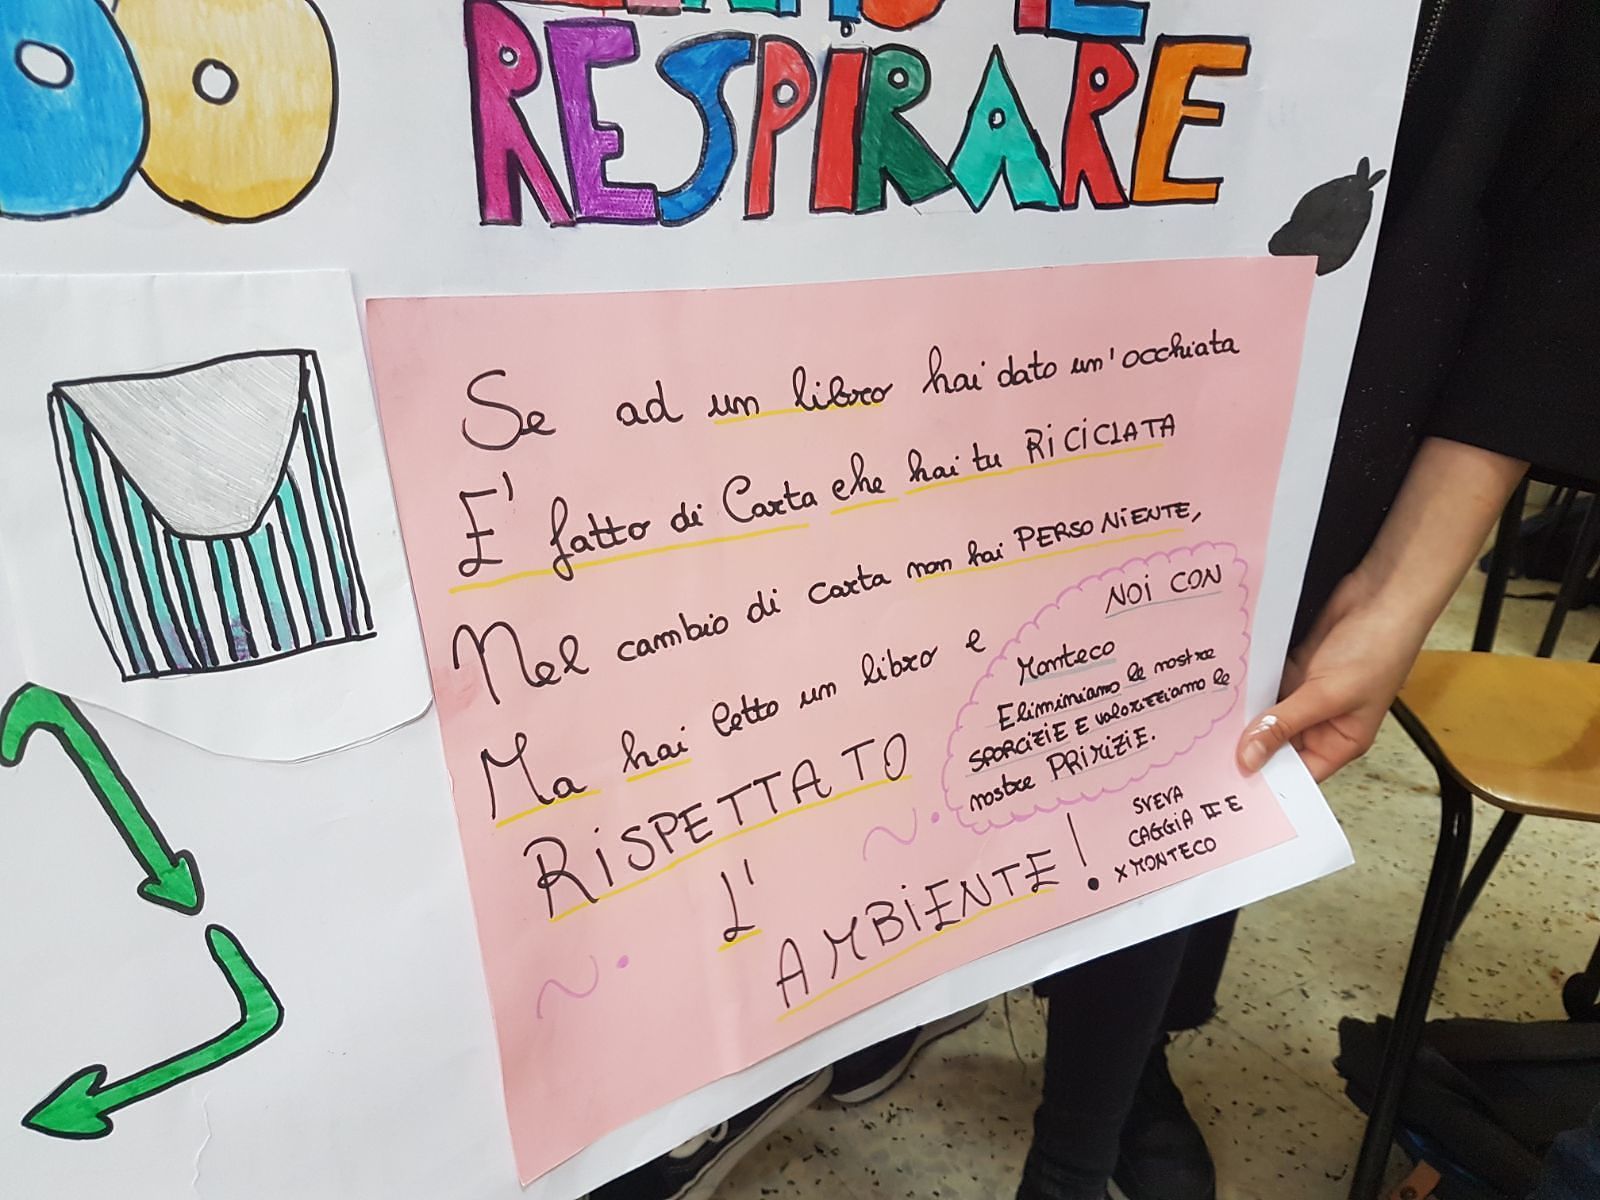 RESPIRARE
Se ad un libro hai dato un'occhiata
E' fatto di Carta che hai tu RICICLATA
Nel cambio di carta non hai PERSO NIENTE,
Ma hai letto un libro e
RISPETTATO
L'
AMBIENTE!
NOI CON
Monteco
Eliminiamo le nostre
SPORCIZIE E valorizziamo le
nostre PRIMIZIE.
SVEVA
CAGGIA II E
X MONTECO